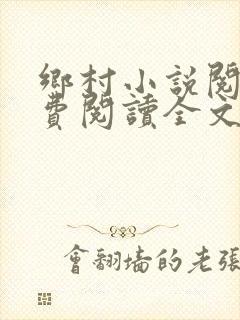 鄉村小說閱
費閱讀全文
會翻墻的老張